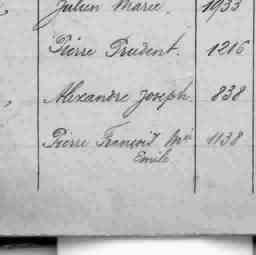 Julien Marie. 1933
Pierre Prudent. 1216
Alexandre Joseph. 838
Pierre François Mie 1138
Emile